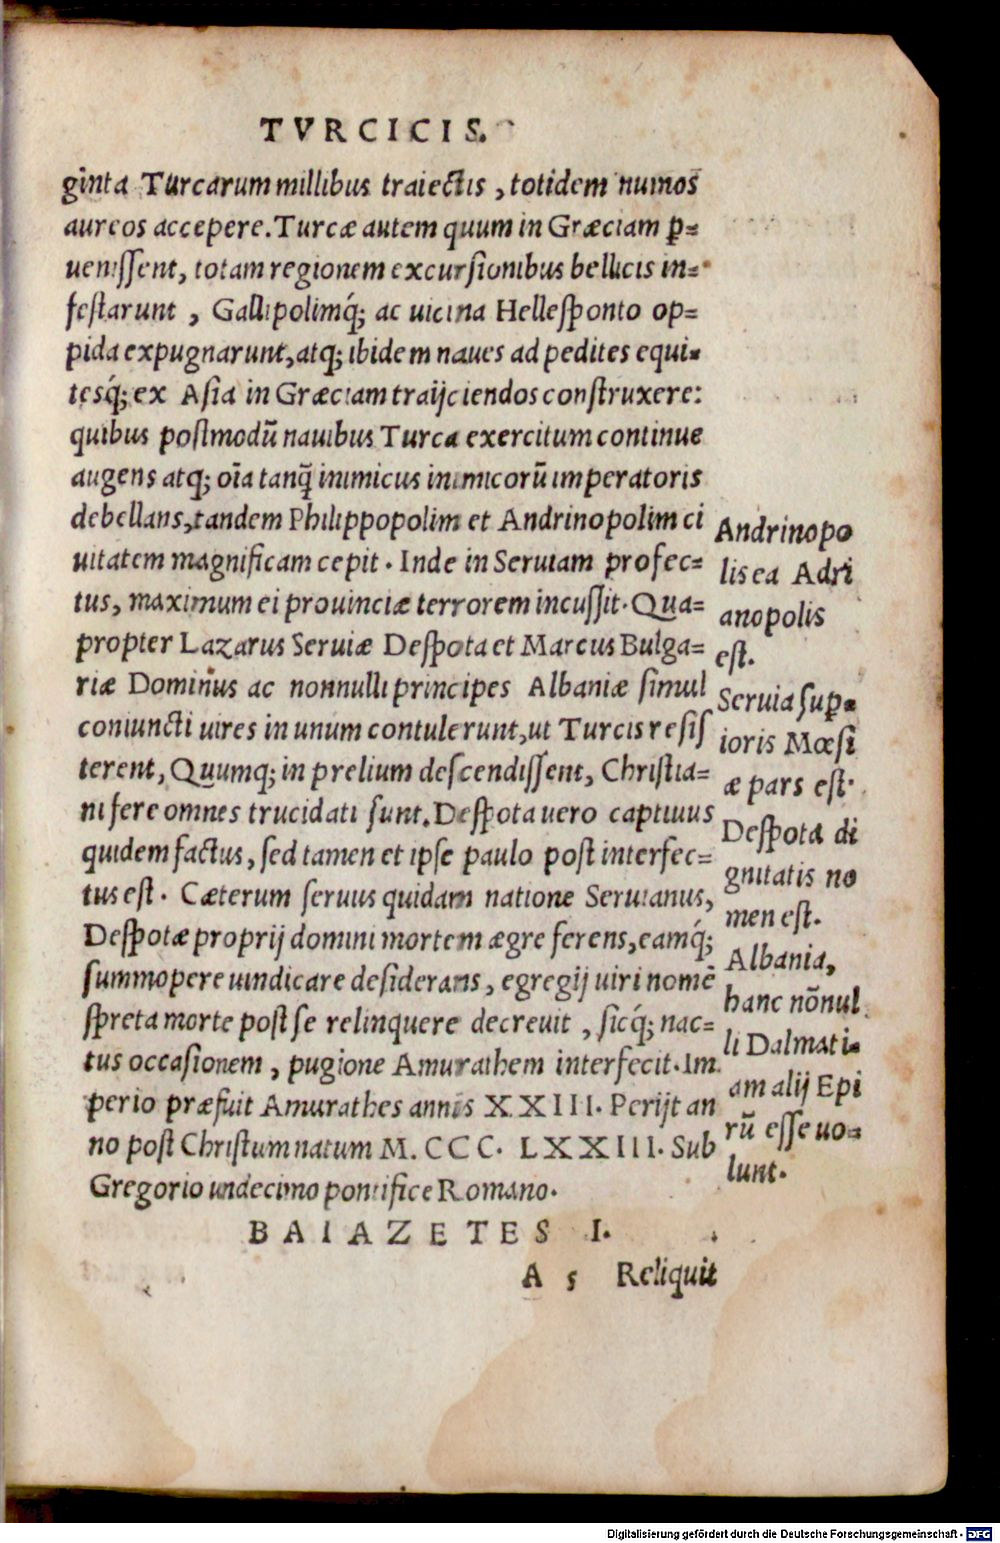 TVRCICIS.
ginta Turcarum millibus traiectis, totidem numos
aureos accepere. Turcæ autem quum in Græciam ꝑ=
uenissent, totam regionem excursionibus bellicis in=
festarunt, Gallipolimq́; ac uicina Hellesponto op=
pida expugnarunt, atq; ibidem naues ad pedites equi=
tesq́; ex Asia in Græciam traijciendos construxere:
quibus postmodū nauibus Turca exercitum continue
augens atq; oīa tanq̄ inimicus inimicorū imperatoris
debellans, tandem Philippopolim et Andrinopolim ci
uitatem magnificam cepit. Inde in Seruiam profec=
tus, maximum ei prouinciæ terrorem incussit. Qua=
propter Lazarus Seruiæ Despota et Marcus Bulga=
riæ Dominus ac nonnulli principes Albaniæ simul
coniuncti uires in unum contulerunt, ut Turcis resis
terent, Quumq; in prelium descendissent, Christia=
ni fere omnes trucidati sunt. Despota uero captiuus
quidem factus, sed tamen et ipse paulo post interfec=
tus est. Cæterum seruus quidam natione Seruianus,
Despotæ proprij domini mortem ægre ferens, eamq́;
summopere uindicare desiderans, egregij uiri nomē
spreta morte post se relinquere decreuit, sicq́; nac=
tus occasionem, pugione Amurathem interfecit. Im
perio præfuit Amurathes annis XXIII. Perijt an
no post Christum natum M. CCC. LXXIII. Sub
Gregorio undecimo pontifice Romano.
BAIAZETES I.
A 5 Reliquit
Andrinopo
lis ea Adri
anopolis
est.
Seruia suꝑ=
ioris Mœsi
æ pars est.
Despota di
gnitatis no
men est.
Albania,
hanc nōnul
li Dalmati=
am alij Epi
rū esse uo=
lunt.
Digitalisierung gefördert durch die Deutsche Forschungsgemeinschaft - DFG